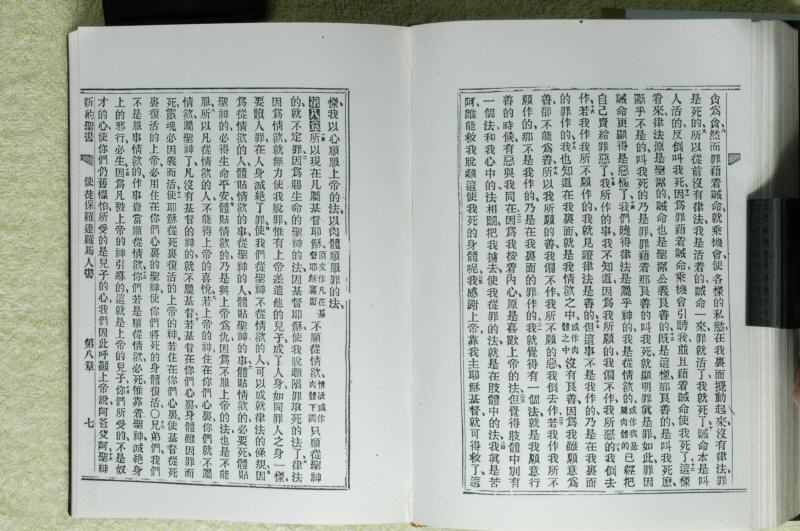 貪爲貪然而罪藉着誡命就乘機會使各樣的私慾在我裏面攪動起來沒有律法罪
是死的所以從前沒有律法我是活着的誡命一來罪就活了我就死了誡命本是叫
人活的反倒叫我死因爲罪藉着誡命乘機會引誘我並且藉着誡命使我死了這樣
看來律法原是聖潔的誡命也是聖潔公義良善的旣是這樣那良善的是叫我死麽
斷乎不是的叫我死的乃是罪罪藉着那良善的叫我死就顯明罪眞是罪如此罪因
誡命更顯得是惡極了我們曉得律法是屬乎神的我是從情慾的或作我是屬肉體的已經把
自己賣給罪惡了我所作的事我不知道因爲我所願的我偏不作我所惡的我倒去
作若我作我所不願作的我就見證律法是善的但這事不是我作的乃是在我裏面
的罪作的我也知道在我裏面就是我情慾之中或作肉體之中沒有良善因爲我雖願意爲
善卻不能爲善所以我所願的善我偏不作我所不願的惡我倒去作若我作我所不
願作的不是我作的乃是在我裏面的罪作的我就覺得有一個法就是我願意行
善的時候有惡與我同在因爲我按着內心原是喜歡上帝的法但覺得肢體中別有
一個法和我心中的法相鬭把我擄去使我從罪的法就是在肢體中的法我眞是苦
阿誰能救我脫離這使我死的身體呢我感謝上帝靠我主耶穌基督就可得救了這
樣我以心順服上帝的法以肉體順服罪的法
第八章所以現在凡屬基督耶穌原文作凡在基督耶穌裏面不順從情慾情慾或作肉體下同只順從聖神
的就不定罪因爲賜生命的聖神的法因基督耶穌使我脫離陷罪取死的法了律法
因爲情慾就無力使我脫罪惟有上帝差遣他的兒子成了人身如同罪人之身一樣
要贖人罪在人身滅絕了罪使我們從聖神不從情慾的人可以成就律法的條規因
爲從情慾的人體貼情慾的事從聖神的人體貼聖神的事體貼情慾的必要死體貼
聖神的必得生命平安體貼情慾的乃是與上帝爲仇因爲不服上帝的法也是不能
服所以凡從情慾的人不能得上帝的喜悅若上帝的神住在你們心裏你們就不屬
情慾就屬聖神了人若沒有基督的神就不屬基督若基督在你們心裏身體雖因罪而
死靈魂必因義而活使耶穌從死裏復活的上帝的神若住在你們心裏使基督從死
裏復活的上帝必用住在你們心裏的聖神使你們將死的身體復活○兄弟們我們
不是服事情慾的作事從當順從情慾你們若是順從情慾必死惟靠着聖神滅絕身
上的邪行必生因爲凡被上帝的神引導的這就是上帝的兒子你們所受的不是奴
才的心使你們仍舊懼怕所受的是兒子的心我們因此呼籲上帝說阿爸父阿聖神
新約聖書 使徒保羅達羅馬人書 第八章 七